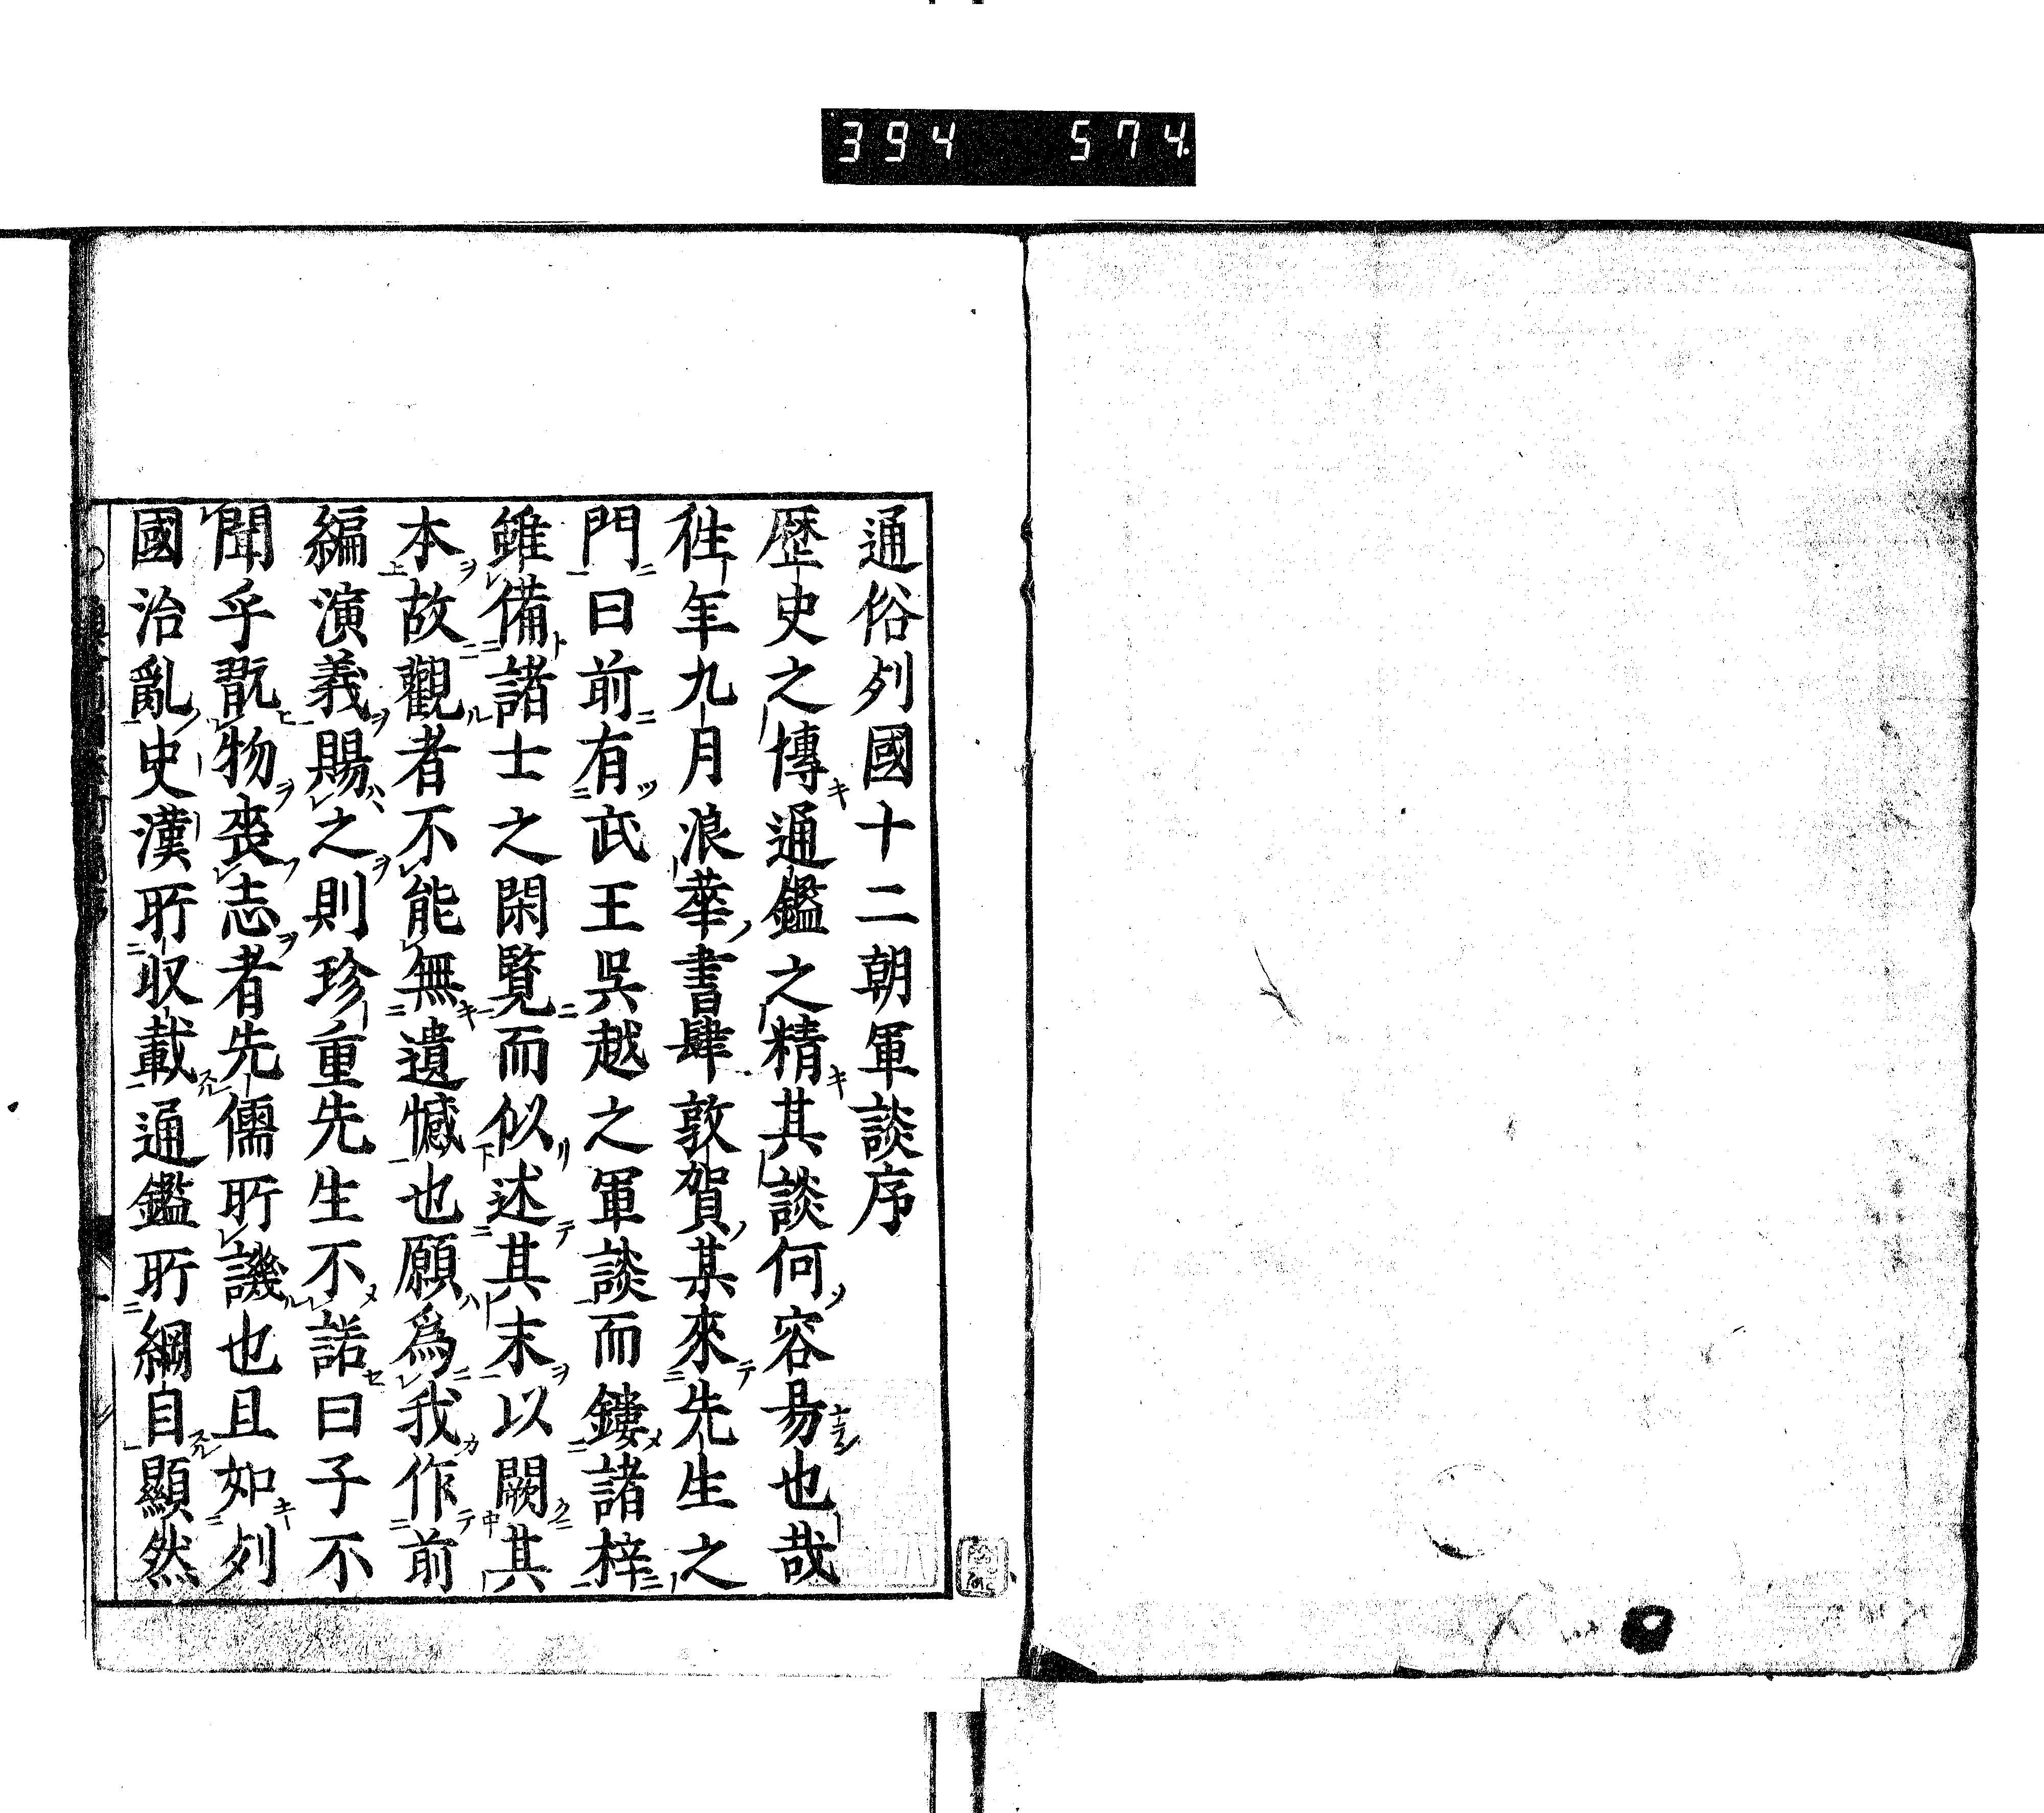 394 574
通俗列國十二朝軍談序
歷史之博通鑑之精其談何容昜也哉
徃年九月浪華書肆敦賀某來先生之
門曰前有武王吳越之軍談而鏤諸梓
雖備諸士之閑覽而似述其末以闕其
本故觀者不能無遺憾也願爲我作前
編演義賜之則珍重先生不諾曰子不
聞乎翫物喪志者先儒所譏也且如列
國治亂史漢所收載通鑑所綱目顯然